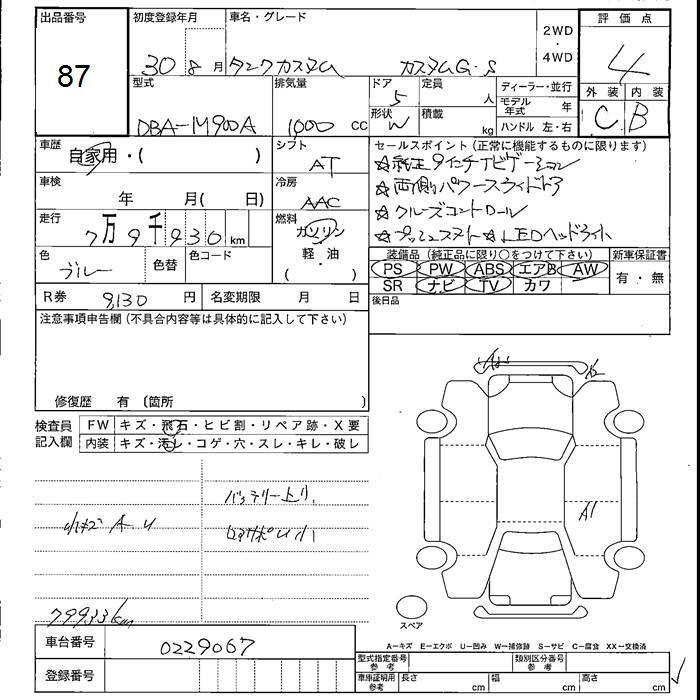 出品番号 初度登録年月 車名・グレード 2WD・4WD 評価点
87 30 8月 タンクカスタム カスタムG-S 4
型式 排気量 ドア 定員 ディーラー・並行 外装 内装
DBA-M900A 1000 CC 5 人 モデル年式 年 C B
形状 W 積載 kg ハンドル 左・右
車歴 シフト セールスポイント(正常に機能するものに限ります)
自家用・( ) AT ☆純正9インチナビゲーション
車検 冷房 ☆両側パワースライドドア
年 月( 日) AAC ☆クルーズコントロール
走行 燃料 ☆プッシュスタート☆LEDヘッドライト
7万9千930km ガソリン
色 色替 色コード 軽・油 装備品(純正品に限り○をつけて下さい) 新車保証書
ブルー ( ・ ) PS PW ABS エアB AW 有・無
SR ナビ TV カワ
R券 9,130円 名変期限 月 日 後日品
注意事項申告欄(不具合内容等は具体的に記入して下さい)
修復歴 有 〔箇所
検査員 FW キズ・飛石・ヒビ割・リペア跡・X要
記入欄 内装 キズ・汚レ・コゲ・穴・スレ・キレ・破レ
バッテリー上り
小キズ A.U
A1
79933km
スペア
車台番号 0229067
A-キズ E-エクボ U-凹み W-補修跡 S-サビ C-腐食 XX-交換済
型式指定番号 参考 類別区分番号 参考
登録番号 車庫証明用 参考 長さ cm 幅 cm 高さ cm